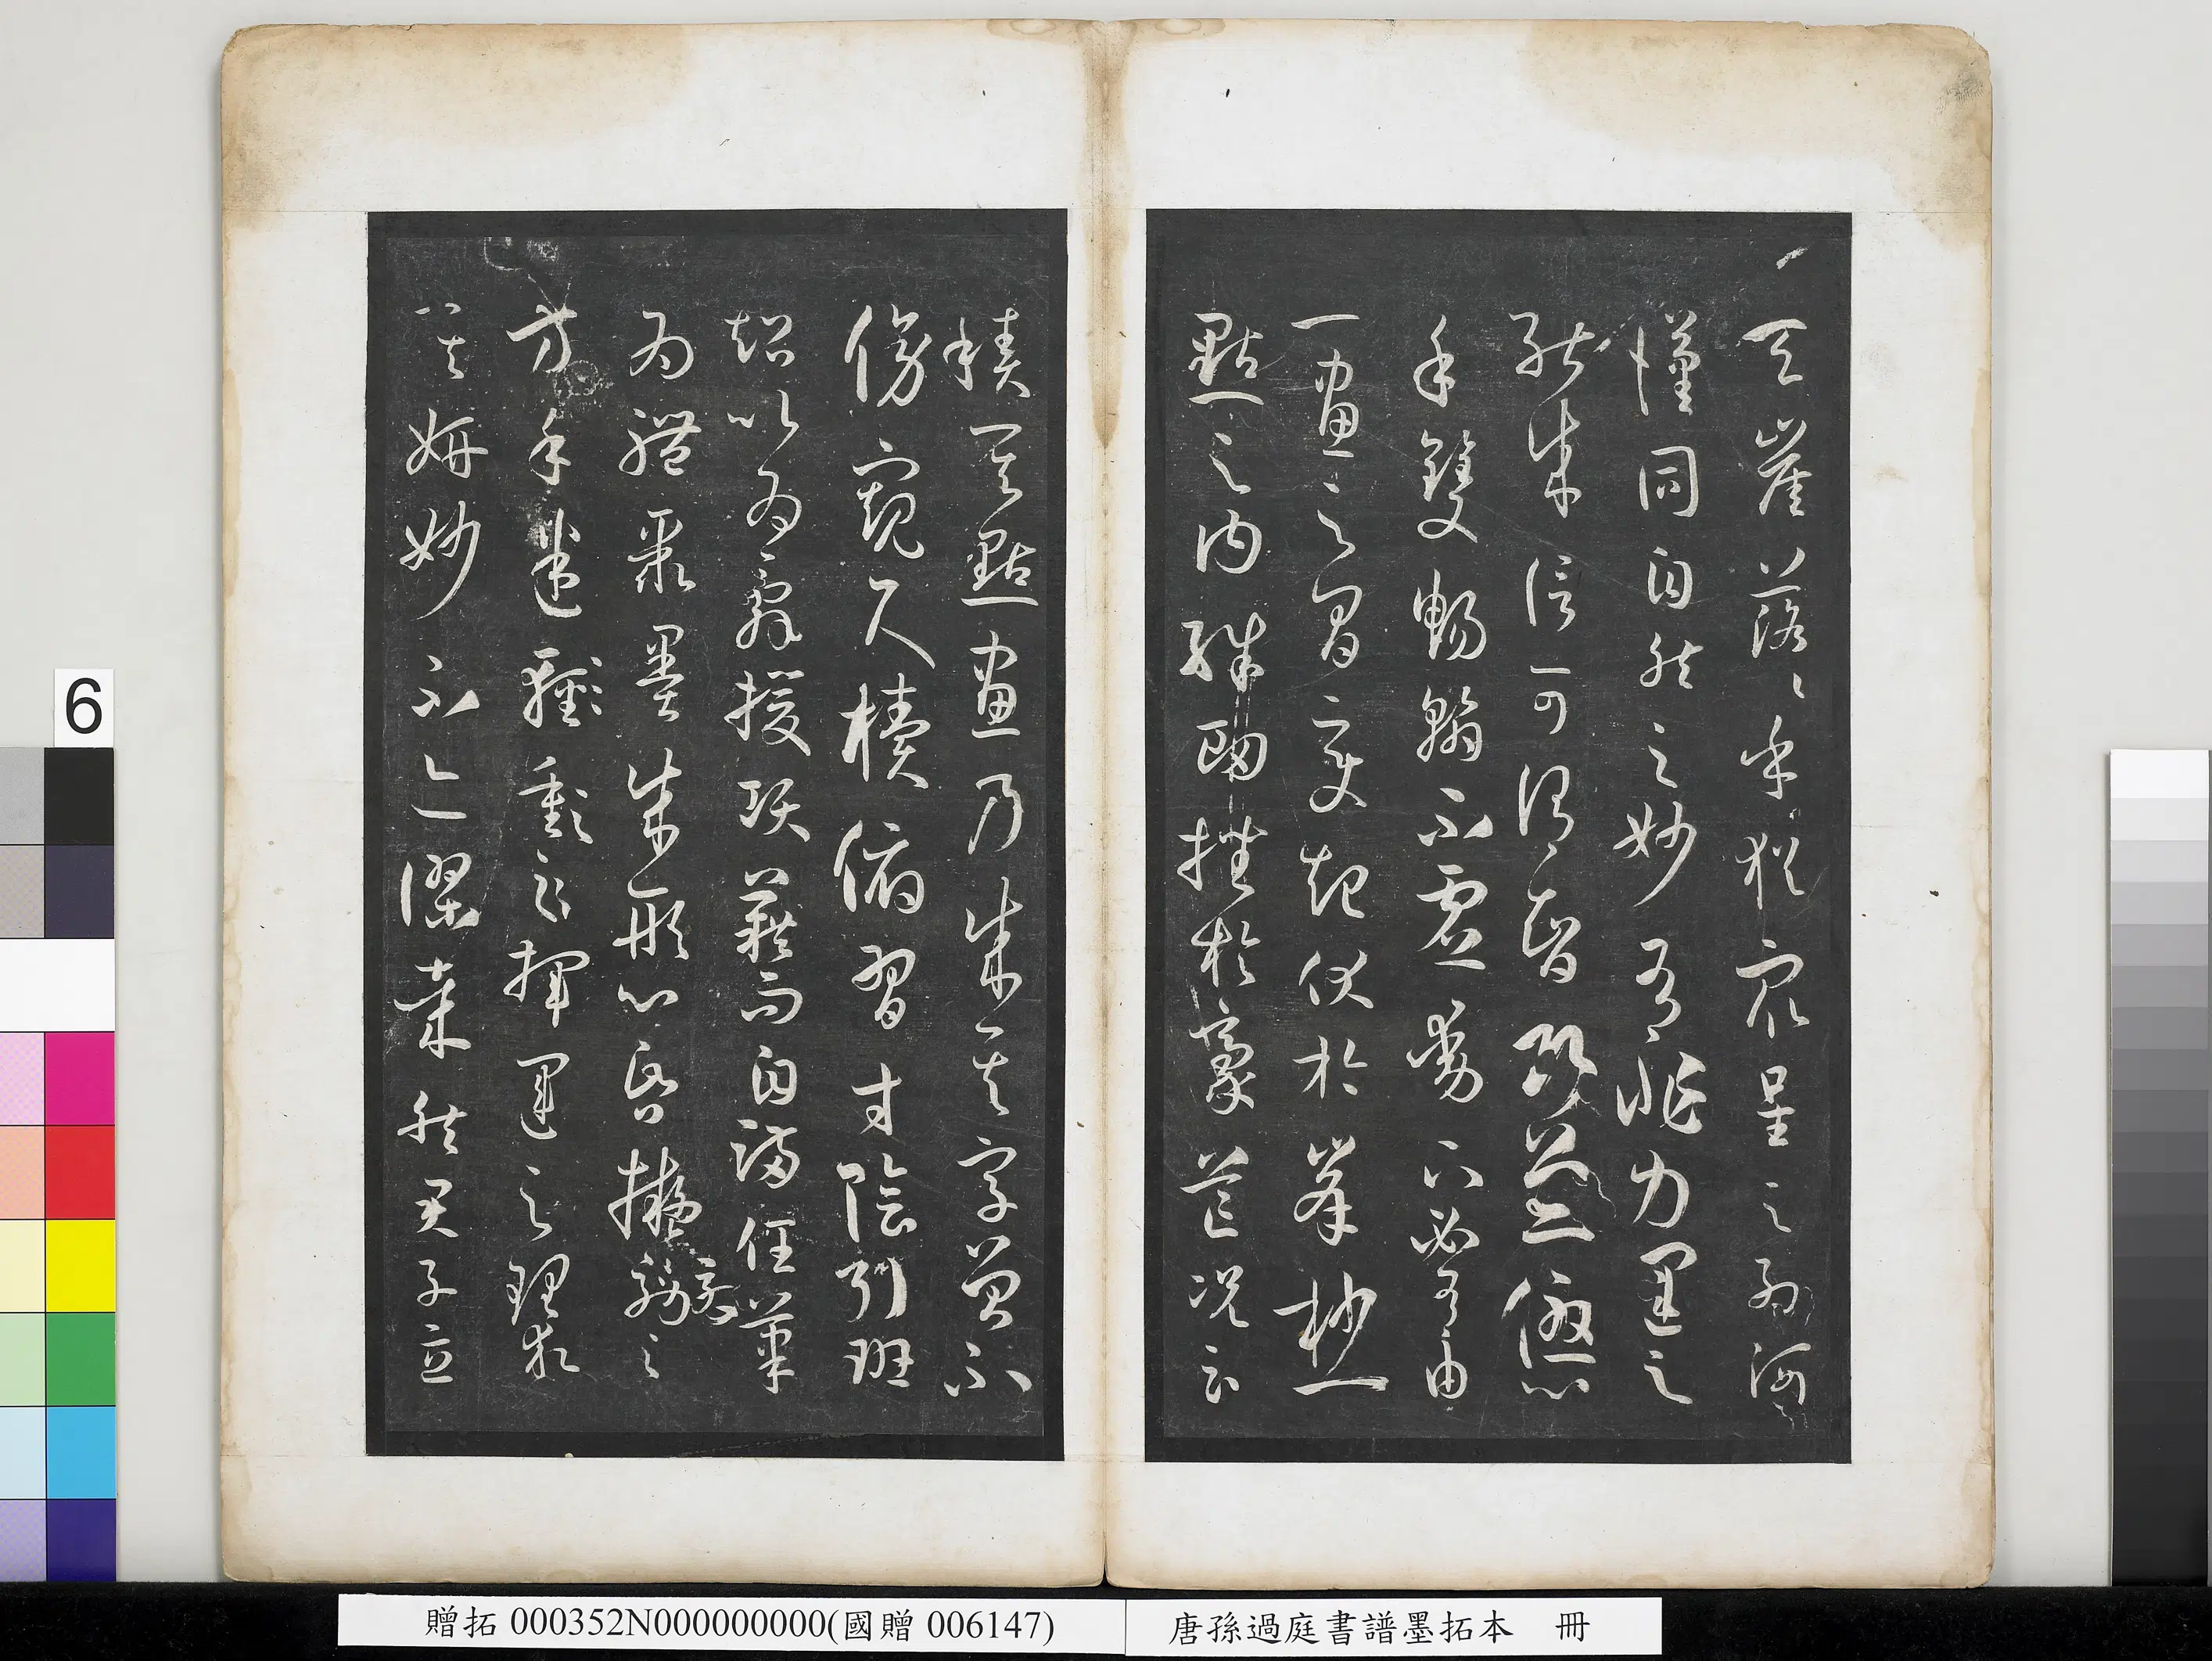 天崖落〻乎猶眾星之列河
漢同自然之妙有非力運之
能成信可謂智巧兼優心
手雙暢翰不虛動下必有由
一畫之間變起伏於峯杪一
點之內殊衄挫於豪芒況云
積其點畫乃成其字曾不
傍窺尺牘俯習寸陰引班
超以為辭援項籍而自滿任筆
為體聚墨成形心昏擬效之
方手迷揮運之理求
其妍妙不亦謬哉然君子立
6
贈拓 000352N000000000(國贈 006147)
唐孫過庭書譜墨拓本 冊